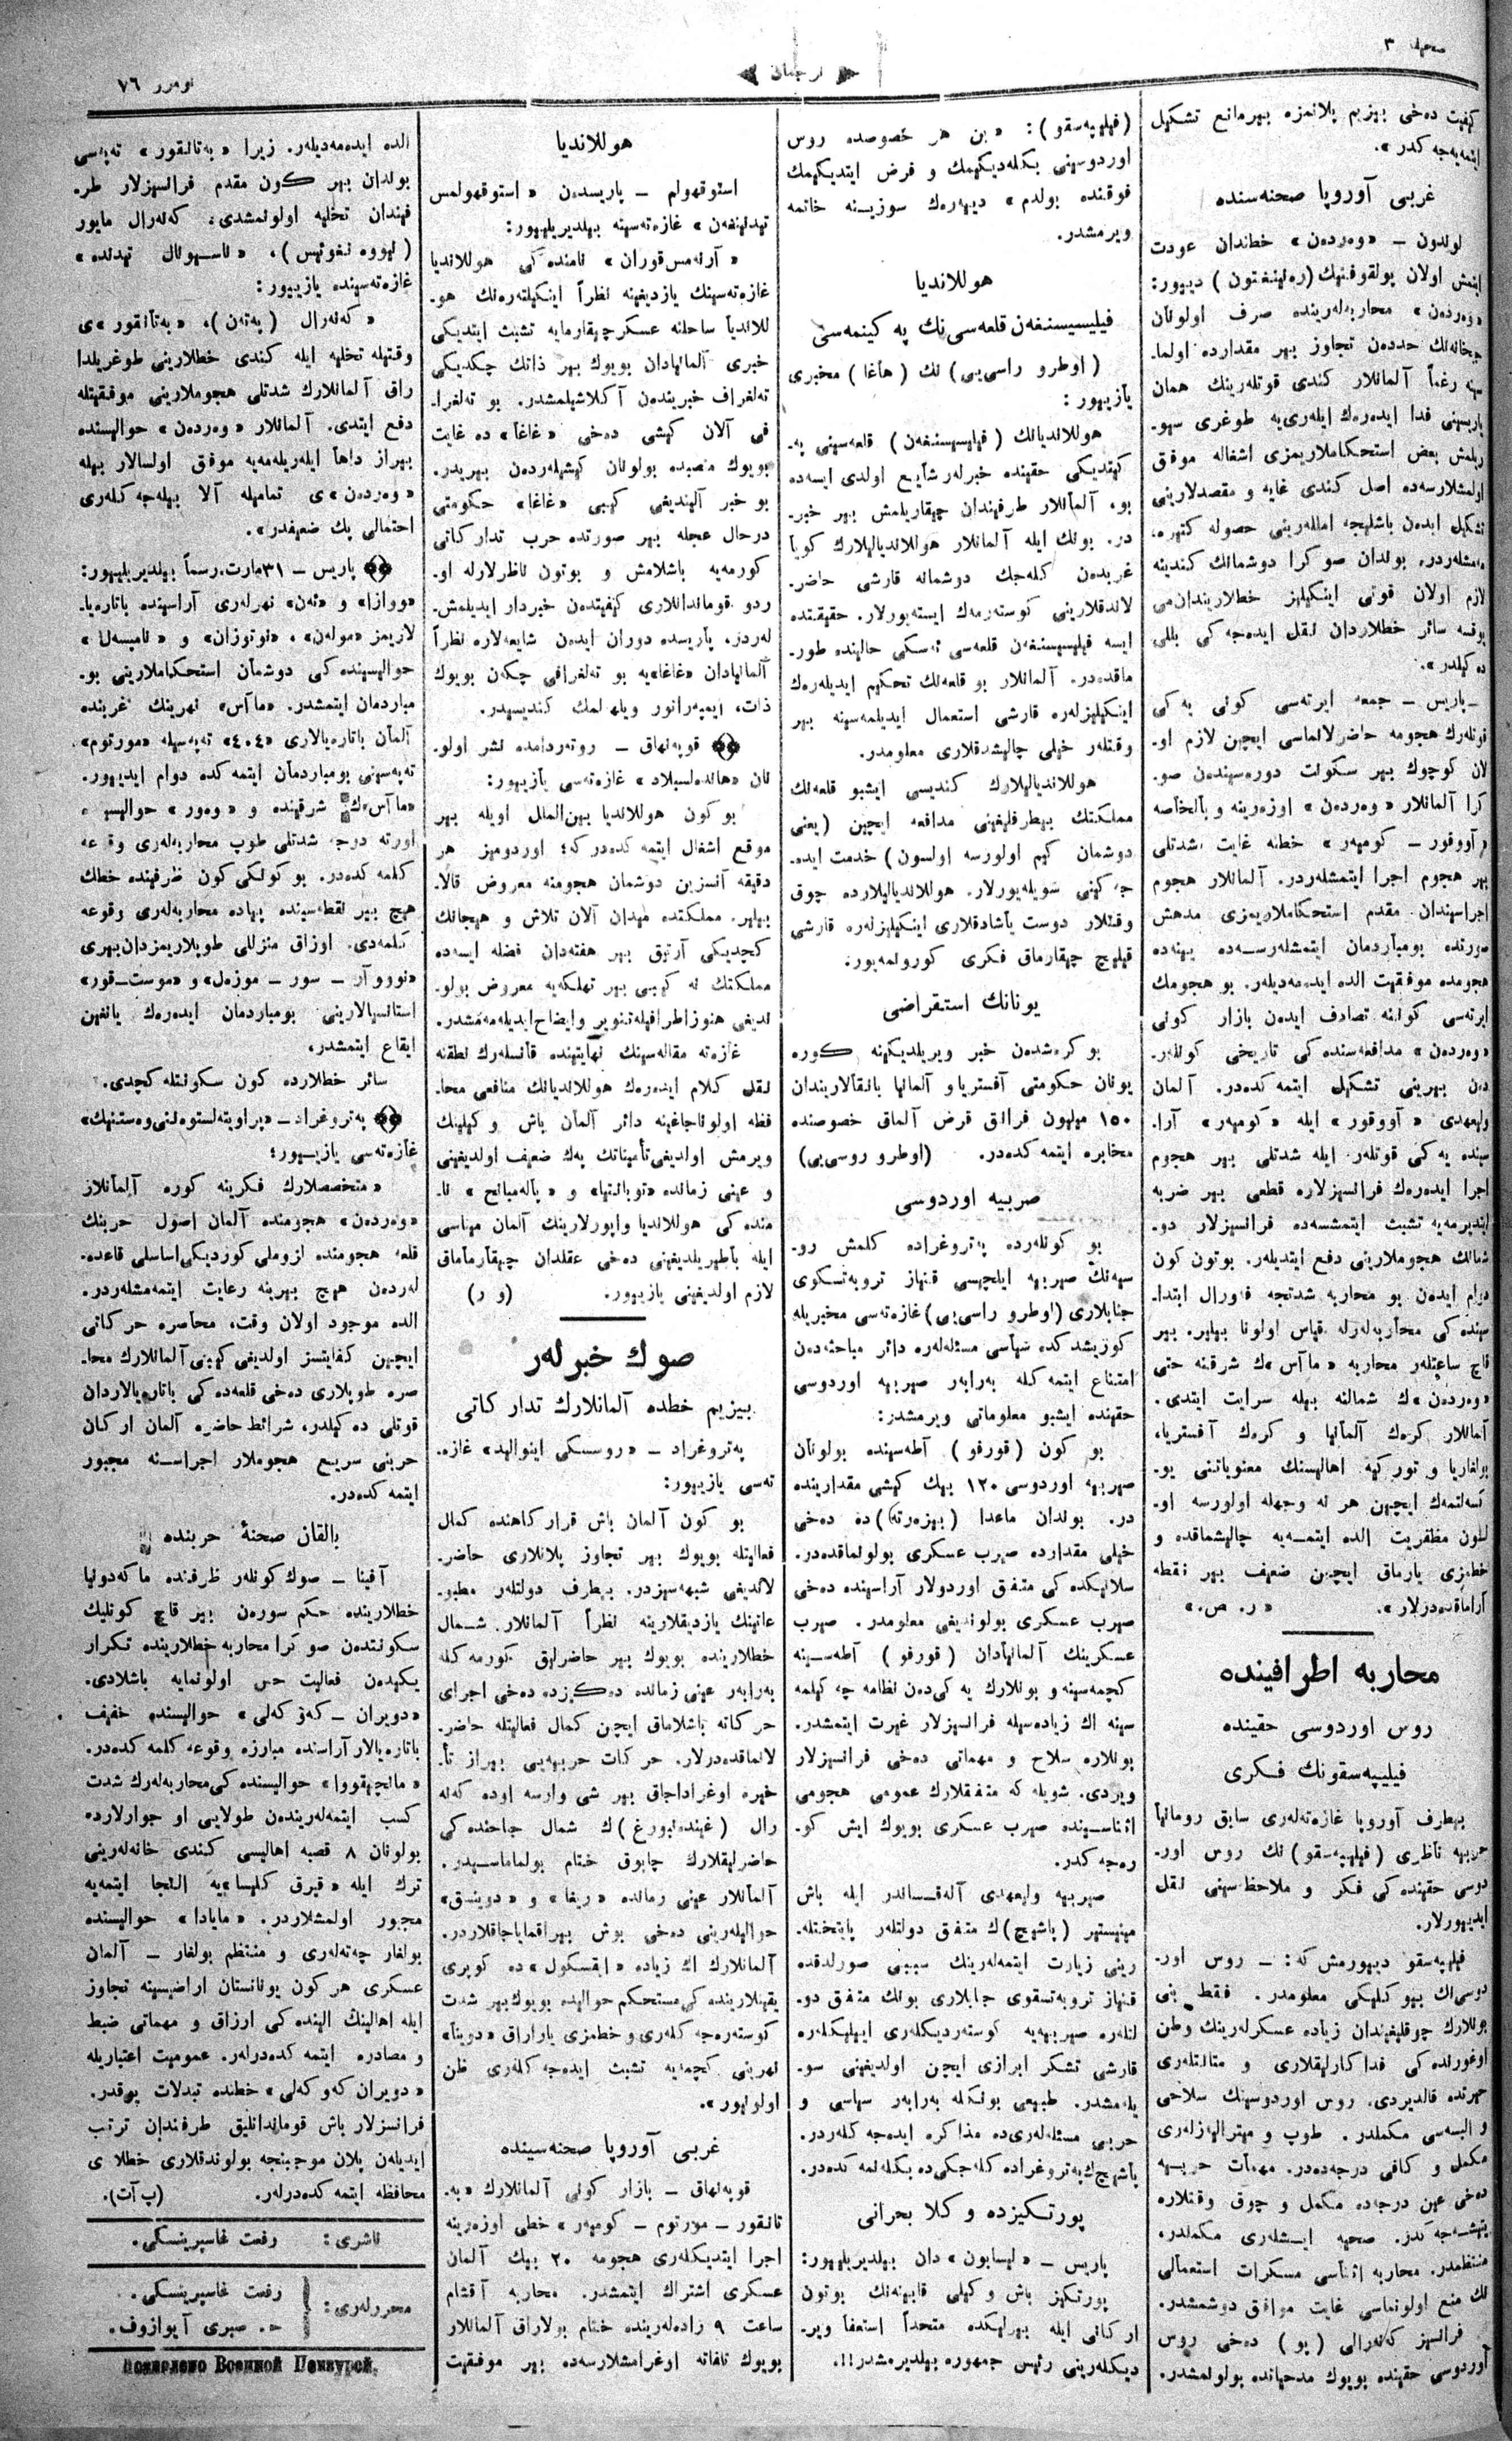 صحیفه ٣
ترجمان
نومرو ٧٦
كیفیت ده‌خی بیزیم پلانمزه بیرمانع تشكیل
ایتمه‌یه‌جه‌كدر».
غربی آوروپا صحنه‌سنده
لوندون – «وه‌ردەن» خطندان عودت
ایتمش اولان پولقوفنیك (ره‌پینغتون) دییور:
«وه‌ردەن» محاربه‌له‌رینده صرف اولونان
جبخانه‌نك حددن تجاوز بیر مقدارده اولما-
سینه رغماً آلمانلار كندی قوتله‌رینك همان
یاریسینی فدا ایده‌ره‌ك ایله‌ری‌یه طوغری سو-
ریلمش بعض استحكاملاریمزی اشغاله موفق
اولمشلارسه‌ده اصل كندی غایه و مقصدلارینی
تشكیل ایدەن باشلیجه امللەرینی حصوله كتیره-
مه‌مشله‌ردر. بوندان صوكرا دوشمانك كندینه
لازم اولان قوتی اینكیلیز خطلاریندان‌می
یوقسه سائر خطلاردان نقل ایده‌جه‌كی بللی
ده‌كیلدر».
– پاریس – جمعه ایرته‌سی كونی یه‌كی
قوتله‌رك هجومه حاضرلانماسی ایچین لازم او-
لان كوچوك بیر سكونت دوره‌سیندەن صو-
كرا آلمانلار «وه‌ردەن» اوزه‌رینه و بالخاصه
«آووقور – كومیه‌ر» خطنه غایت شدتلی
بیر هجوم اجرا ایتمشله‌ردر. آلمانلار هجوم
اجراسیندان مقدم استحكاملاریمزی مدهش
صورتده بومباردمان ایتمشله‌رسه‌ده یینه‌ده
هجومده موفقیت الده ایده‌مه‌دیله‌ر. بو هجومك
ایرته‌سی كونینه تصادف ایدەن بازار كونی
«وه‌ردەن» مدافعه‌سنده‌كی تاریخی كونلر-
دەن بیرینی تشكیل ایتمه‌كده‌در. آلمان
ولیعهدی «آووقور» ایله «كومیه‌ر» آرا-
سینده یه‌كی قوتله‌ر ایله شدتلی بیر هجوم
اجرا ایده‌ره‌ك فرانسیزلاره قطعی بیر ضربه
ایندیرمه‌یه تشبث ایتمشسه‌ده فرانسیزلار دو-
شمانك هجوملارینی دفع ایتدیله‌ر. بوتون كون
دوام ایدەن بو محاربه شدتجه فه‌ورال ابتدا-
سینده‌كی محاربه‌له‌رله قیاس اولونا بیلیر. بیر
قاچ ساعتله‌ر محاربه «ماآس»ك شرقنه حتی
«وه‌ردەن»ك شمالنه بیله سرایت ایتدی.
آلمانلار كره‌ك آلمانیا و كره‌ك آفستریا،
بولغاریا و توركیه اهالیسنك معنویاتنی یو-
كسه‌لتمه‌ك ایچین هر نه وجهله اولورسه او-
لسون مظفریت الده ایتمه‌یه چالیشماقده و
خطمزی یارماق ایچین ضعیف بیر نقطه
آراماقده‌درلار». «ر. ص.»
محاربه اطرافینده
روس اوردوسی حقینده
فیلیپه‌سقونك فكری
بیطرف آوروپا غازه‌ته‌له‌ری سابق رومانیا
حربیه ناظری (فیلیپه‌سقو)نك روس اور-
دوسی حقینده‌كی فكر و ملاحظه‌سینی نقل
ایدییورلار.
فیلیپه‌سقو دییورمش كه: – روس اور-
دوسی‌نك بیوكلیكی معلومدر. فقط بنی
بونلارك چوقلیغیندان زیاده عسكرله‌رینك وطن
اوغورنده‌كی فداكارلیقلاری و متانتله‌ری
حیرتده قالدیردی. روس اوردوسینك سلاحی
و البسه‌سی مكملدر. طوپ و میترالیه‌زله‌ری
مكمل و كافی درجه‌ده‌در. مهمات حربیه
ده‌خی عین درجه‌ده مكمل و چوق وقتلاره
یتیشه‌جه‌كدر. صحیه ایشله‌ری مكملدر،
منتظمدر. محاربه اثناسی مسكرات استعمالی-
نك منع اولونماسی غایت موافق دوشمشدر.
فرانسیز كه‌نه‌رالی (پو) ده‌خی روس
اوردوسی حقینده بویوك مدحیانده بولونمشدر.
(فیلیپه‌سقو): «بن هر خصوصده روس
اوردوسینی بكله‌دیكیمك و فرض ایتدیكیمك
فوقنده بولدم» دییه‌ره‌ك سوزیینه خاتمه
ویرمشدر.
هوللاندیا
فیلیسیسنغه‌ن قلعه‌سی‌نك په‌كینمه‌سی
(اوطرو راسی‌یی)نك (هاغا) مخبری
یازییور:
هوللاندیانك (فیلیسیسنغه‌ن) قلعه‌سینی په-
كیتدیكی حقینده خبرله‌ر شایع اولدی ایسه‌ده
بو، آلمانلار طرفیندان چیقاریلمش بیر خبر-
در. بونك ایله آلمانلار هوللاندیالیلارك كویا
غربدەن كله‌جك دوشمانه قارشی حاضر-
لاندقلارینی كوسته‌رمه‌ك ایسته‌یورلار. حقیقتده
ایسه فیلیسیسنغه‌ن قلعه‌سی ئه‌سكی حالینده طور-
ماقده‌در. آلمانلار بو قلعه‌نك تحكیم ایدیله‌ره‌ك
اینكیلیزله‌ره قارشی استعمال ایدیلمه‌سینه بیر
وقتله‌ر خیلی چالیشدقلاری معلومدر.
هوللاندیالیلارك كندیسی ایشبو قلعه‌نك
مملكتك بیطرفلیغینی مدافعه ایچین (یعنی
دوشمان كیم اولورسه اولسون) خدمت ایده-
جه‌كینی سویله‌یورلار. هوللاندیالیلارده چوق
وقتلار دوست یاشادقلاری اینكیلیزله‌ره قارشی
قیلیچ چیقارماق فكری كورولمه‌یور.
یونانك استقراضی
بوكره‌شدەن خبر ویریلدیكینه كوره
یونان حكومتی آفستریا و آلمانیا بانقالاریندان
١٥٠ میلیون فرانق قرض آلماق خصوصنده
مخابره ایتمه‌كده‌در. (اوطرو روسی‌یی)
صربیه اوردوسی
بو كونله‌رده په‌تروغراده كلمش رو-
سیه‌نك صیربیه ایلچیسی قنیاز تروبه‌تسكوی
جنابلاری (اوطرو راسی‌یی) غازه‌ته‌سی مخبریله
كوریشدكده سیاسی مسئله‌له‌ره دائر مباحثه‌دەن
امتناع ایتمه‌كله به‌رابه‌ر صیربیه اوردوسی
حقینده ایشبو معلوماتی ویرمشدر:
بو كون (قورفو) آطه‌سینده بولونان
صیربیه اوردوسی ١٢٠ بیك كیشی مقدارینده
در. بوندان ماعدا (بیزه‌رته)ده ده‌خی
خیلی مقدارده صیرب عسكری بولونماقده‌در.
سلانیكده‌كی متفق اوردولار آراسینده ده‌خی
صیرب عسكری بولوندیغی معلومدر. صیرب
عسكرینك آلمانیادان (قورفو) آطه‌سینه
كچمه‌سینه و بونلارك یه‌كی‌دەن نظامه چه‌كیلمه-
سینه اك زیاده‌سیله فرانسیزلار غیرت ایتمشدر.
بونلاره سلاح و مهماتی ده‌خی فرانسیزلار
ویردی. شویله كه متفقلارك عمومی هجومی
اثناسینده صیرب عسكری بویوك ایش كو-
ره‌جه‌كدر.
صیربیه ولیعهدی آله‌قساندر ایله باش
مینیستیر (پاشیچ)ك متفق دولتله‌ر پایتختله-
رینی زیارت ایتمه‌له‌رینك سببی صورلدقده
قنیاز تروبه‌تسقوی جنابلاری بونك متفق دو-
لتله‌ره صیربیه‌یه كوسته‌ردیكله‌ری ایییلیكله‌ره
قارشی تشكر ابرازی ایچین اولدیغینی سو-
یله‌مشدر. طبیعی بونكله به‌رابه‌ر سیاسی و
حربی مسئله‌له‌ری‌ده مذاكره ایده‌جه‌كله‌ردر.
پاشیچ‌ك په‌تروغراده كله‌جكی‌ده بكله‌نمه‌كده‌در.
پورتكیزده وكلا بحرانی
پاریس – «لیسابون»دان بیلدیریلییور:
پورتكیز باش وكیلی قابینه‌نك بوتون
اركانی ایله بیرلیكده متحداً استعفا ویر-
دیكله‌رینی رئیس جمهوره بیلدیرمشدر!!.
هوللاندیا
استوقهولم – پاریسدەن «استوقهولمس
تیدنینغه‌ن» غازه‌ته‌سینه بیلدیریلییور:
«آرنه‌مس‌قوران» نامنده‌كی هوللاندیا
غازه‌ته‌سینك یازدیغینه نظراً اینكیلته‌ره‌نك هو-
للاندیا ساحلنه عسكر چیقارمایه تشبث ایتدیكی
خبری آلمانیادان بویوك بیر ذاتك چكدیكی
ته‌لغراف خبریندەن آكلاشیلمشدر. بو ته‌لغرا-
فی آلان كیشی ده‌خی «غاغا»ده غایت
بویوك منصبده بولونان كیشیله‌ردەن بیریدر.
بو خبر آلیندیغی كیبی «غاغا» حكومتی
درحال عجله بیر صورتده حرب تداركاتی
كورمه‌یه باشلامش و بوتون ناظرلارله او-
ردو قوماندانلاری كیفیتدەن خبردار ایدیلمش-
له‌ردر. پاریسده دوران ایدەن شایعه‌لاره نظراً
آلمانیادان «غاغا»یه بو ته‌لغرافی چكەن بویوك
ذات، ایمپه‌راتور ویلهه‌لمك كندیسیدر.
قوپه‌نهاق – روته‌ردامده نشر اولو-
نان «هانده‌لسبلاد» غازه‌ته‌سی یازییور:
بو كون هوللاندیا بین‌الملل اویله بیر
موقع اشغال ایتمه‌كده‌در كه؛ اوردومیز هر
دقیقه آنسزین دوشمان هجومنه معروض قالا-
بیلیر. مملكتده میدان آلان تلاش و هیجانك
كچدیكی آرتیق بیر هفته‌دان فضله ایسه‌ده
مملكتك نه كیبی بیر تهلكه‌یه معروض بولو-
ندیغی هنوز اطرافیله تنویر و ایضاح ایدیله‌مه‌مشدر.
غازه‌ته مقاله‌سینك نهایتینده قانسله‌رك نطقنه
نقل كلام ایده‌ره‌ك هوللاندیانك منافعی محا-
فظه اولوناجاغینه دائر آلمان باش وكیلینك
ویرمش اولدیغی تأمیناتك په‌ك ضعیف اولدیغینی
و عینی زمانده «توبانتیا» و «پاله‌مبانح» نا-
منده‌كی هوللاندیا واپورلارینك آلمان میناسی
ایله باطیریلدیغینی ده‌خی عقلدان چیقارماماق
لازم اولدیغینی یازییور. (و ر)
صوك خبرله‌ر
بیزیم خطده آلمانلارك تداركاتی
په‌تروغراد – «روسسكی اینوالید» غازه-
ته‌سی یازییور:
بو كون آلمان باش قرارگاهنده كمال
فعالیتله بویوك بیر تجاوز پلانلاری حاضر-
لاندیغی شبهه‌سزدر. بیطرف دولتله‌ر مطبو-
عاتینك یازدیقلارینه نظراً آلمانلار شمال
خطلارینده بویوك بیر حاضرلیق كورمه‌كله
به‌رابه‌ر عینی زمانده ده‌كیزده ده‌خی اجرای
حركاته باشلاماق ایچین كمال فعالیتله حاضر-
لانماقده‌درلار. حركات حربیه‌یی بیراز تأ-
خیره اوغراداجاق بیر شی وارسه اوده كه‌نه-
رال (غیندەنبورغ)ك شمال جناحنده‌كی
حاضرلیقلارك چابوق ختام بولماماسیدر.
آلمانلار عینی زمانده «ریغا» و «دوینسق»
حوالیله‌رینی ده‌خی بوش بیراقمایاجاقلاردر.
آلمانلارك اك زیاده «ایقسكول»ده كوبری
یقینلارینده‌كی مستحكم حوالیده بویوك بیر شدت
كوسته‌ره‌جه‌كله‌ری و خطمزی یاراراق «دوینا»
نهرینی كچمه‌یه تشبث ایده‌جه‌كله‌ری ظن
اولونیور».
غربی آوروپا صحنه‌سینده
قوپه‌نهاق – بازار كونی آلمانلارك «به-
تانقور – مورتوم – كومیه‌ر» خطی اوزه‌رینه
اجرا ایتدیكله‌ری هجومه ٢٠ بیك آلمان
عسكری اشتراك ایتمشدر. محاربه آقشام
ساعت ٩ راده‌له‌رینده ختام بولاراق آلمانلار
بویوك تلفاته اوغرامشلارسه‌ده بیر موفقیت
الده ایده‌مه‌دیله‌ر. زیرا «به‌تانقور» ته‌په‌سی
بوندان بیر كون مقدم فرانسیزلار طر-
فیندان تخلیه اولونمشدی. كه‌نه‌رال مایور
(لیووه نغوئیس)، «ناسیونال تیدنده»
غازه‌ته‌سینده یازییور:
«كه‌نه‌رال (په‌ته‌ن)، «به‌تانقور»ی
وقتیله تخلیه ایله كندی خطلارینی طوغریلدا-
راق آلمانلارك شدتلی هجوملارینی موفقیتله
دفع ایتدی. آلمانلار «وه‌ردەن» حوالیسنده
بیراز داها ایله‌ریله‌مه‌یه موفق اولسالار بیله
«وه‌ردەن»ی تمامیله آلا بیله‌جه‌كله‌ری
احتمالی پك ضعیفدر».
پاریس – ٣١ مارت، رسماً بیلدیریلییور:
«وواز» و «ئه‌ن» نهرله‌ری آراسینده باتاره‌یا-
لاریمز «موله‌ن»، «نوتوزان» و «نامپسه‌ل»
حوالیسینده‌كی دوشمان استحكاملارینی بو-
مباردمان ایتمشدر. «ماآس» نهرینك غربنده
آلمان باتاره‌یالاری «٤٠٤» ته‌په‌سیله «مورتوم»
ته‌په‌سینی بومباردمان ایتمه‌كده دوام ایدییور.
«ماآس»ك شرقینده و «وه‌ور» حوالیسینده
اورته درجه شدتلی طوپ محاربه‌له‌ری وقوعه
كلمه‌كده‌در. بو كونكی كون ظرفینده خطك
هیچ بیر نقطه‌سینده پیاده محاربه‌له‌ری وقوعه
كلمه‌دی. اوزاق منزللی طوپلاریمزدان بیری
«نووو آر – سور – موزه‌ل» و «موست–قور»
استانسیالارینی بومباردمان ایده‌ره‌ك یانغین
ایقاع ایتمشدر.
سائر خطلارده كون سكونتله كچدی.
په‌تروغراد – «پراویته‌لستوه‌ننی وه‌ستنیك»
غازه‌ته‌سی یازییور:
«متخصصلارك فكرینه كوره آلمانلار
«وه‌ردەن» هجومنده آلمان اصول حربنك
قلعه هجومنده لزوملی كوردیكی اساسلی قاعده-
له‌ردەن هیچ بیرینه رعایت ایتمه‌مشله‌ردر.
الده موجود اولان وقت، محاصره حركاتی
ایچین كفایتسز اولدیغی كیبی آلمانلارك محا-
صره طوپلاری ده‌خی قلعه‌ده‌كی باتاره‌یالاردان
قوتلی ده‌كیلدر، شرائط حاضره آلمان اركان
حربنی سریع هجوملار اجراسنه مجبور
ایتمه‌كده‌در.
بالقان صحنهٔ حربنده
آفینا – صوك كونله‌ر ظرفنده ماكه‌دونیا
خطلارینده حكم سوره‌ن بیر قاچ كونلیك
سكونتدەن صوكرا محاربه خطلارینده تكرار
یكیدەن فعالیت حس اولونمایه باشلادی.
«دویران – كه‌وكه‌لی» حوالیسنده خفیف
باتاره‌یالار آراسنده مبارزه وقوعه كلمه‌كده‌در.
«ماتچیقووا» حوالیسنده‌كی محاربه‌له‌رك شدت
كسب ایتمه‌له‌ریندەن طولایی او جوارلارده
بولونان ٨ قصبه اهالیسی كندی خانه‌له‌رینی
ترك ایله «قیرق كلیسا»یه التجا ایتمه‌یه
مجبور اولمشلاردر. «مایادا» حوالیسنده
بولغار چه‌ته‌له‌ری و منتظم بولغار – آلمان
عسكری هر كون یونانستان اراضیسینه تجاوز
ایله اهالینك الینده‌كی ارزاق و مهماتی ضبط
و مصادره ایتمه‌كده‌درله‌ر. عمومیت اعتباریله
«دویران كه‌وكه‌لی» خطنده تبدلات یوقدر.
فرانسیزلار باش قوماندانلیق طرفندان ترتیب
ایدیله‌ن پلان موجبنجه بولوندقلاری خطلاری
محافظه ایتمه‌كده‌درله‌ر. (پ آت).
ناشری: رفعت غاسپرینسكی.
محررله‌ری: رفعت غاسپرینسكی.
ح. صبری آیوازوف.
Дозволено Военной Цензурой.